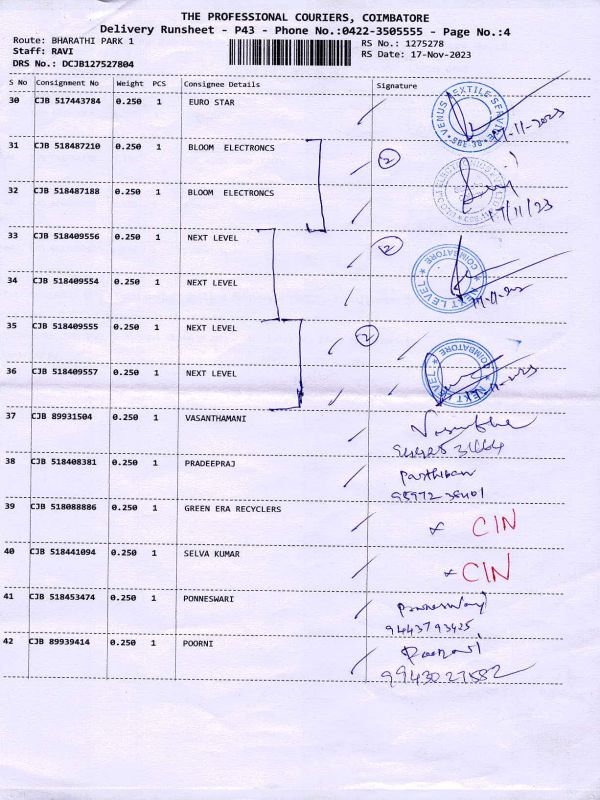 THE PROFESSIONAL COURIERS, COIMBATORE
Delivery Runsheet - P43 - Phone No.:0422-3505555 - Page No.:4
Route: BHARATHI PARK 1 RS No.: 1275278
Staff: RAVI RS Date: 17-Nov-2023
DRS No.: DCJB127527804
S No Consignment No Weight PCS Consignee Details Signature
30 CJB 517443784 0.250 1 EURO STAR
31 CJB 518487210 0.250 1 BLOOM ELECTRONCS 2
32 CJB 518487188 0.250 1 BLOOM ELECTRONCS 17/11/23
33 CJB 518409556 0.250 1 NEXT LEVEL 2
34 CJB 518409554 0.250 1 NEXT LEVEL NEXT LEVEL COIMBATORE
35 CJB 518409555 0.250 1 NEXT LEVEL 2
36 CJB 518409557 0.250 1 NEXT LEVEL NEXT LEVEL COIMBATORE
37 CJB 89931504 0.250 1 VASANTHAMANI
38 CJB 518408381 0.250 1 PRADEEPRAJ Parthiban
39 CJB 518088886 0.250 1 GREEN ERA RECYCLERS x CIN
40 CJB 518441094 0.250 1 SELVA KUMAR x CIN
41 CJB 518453474 0.250 1 PONNESWARI
9443793425
42 CJB 89939414 0.250 1 POORNI
9943027582